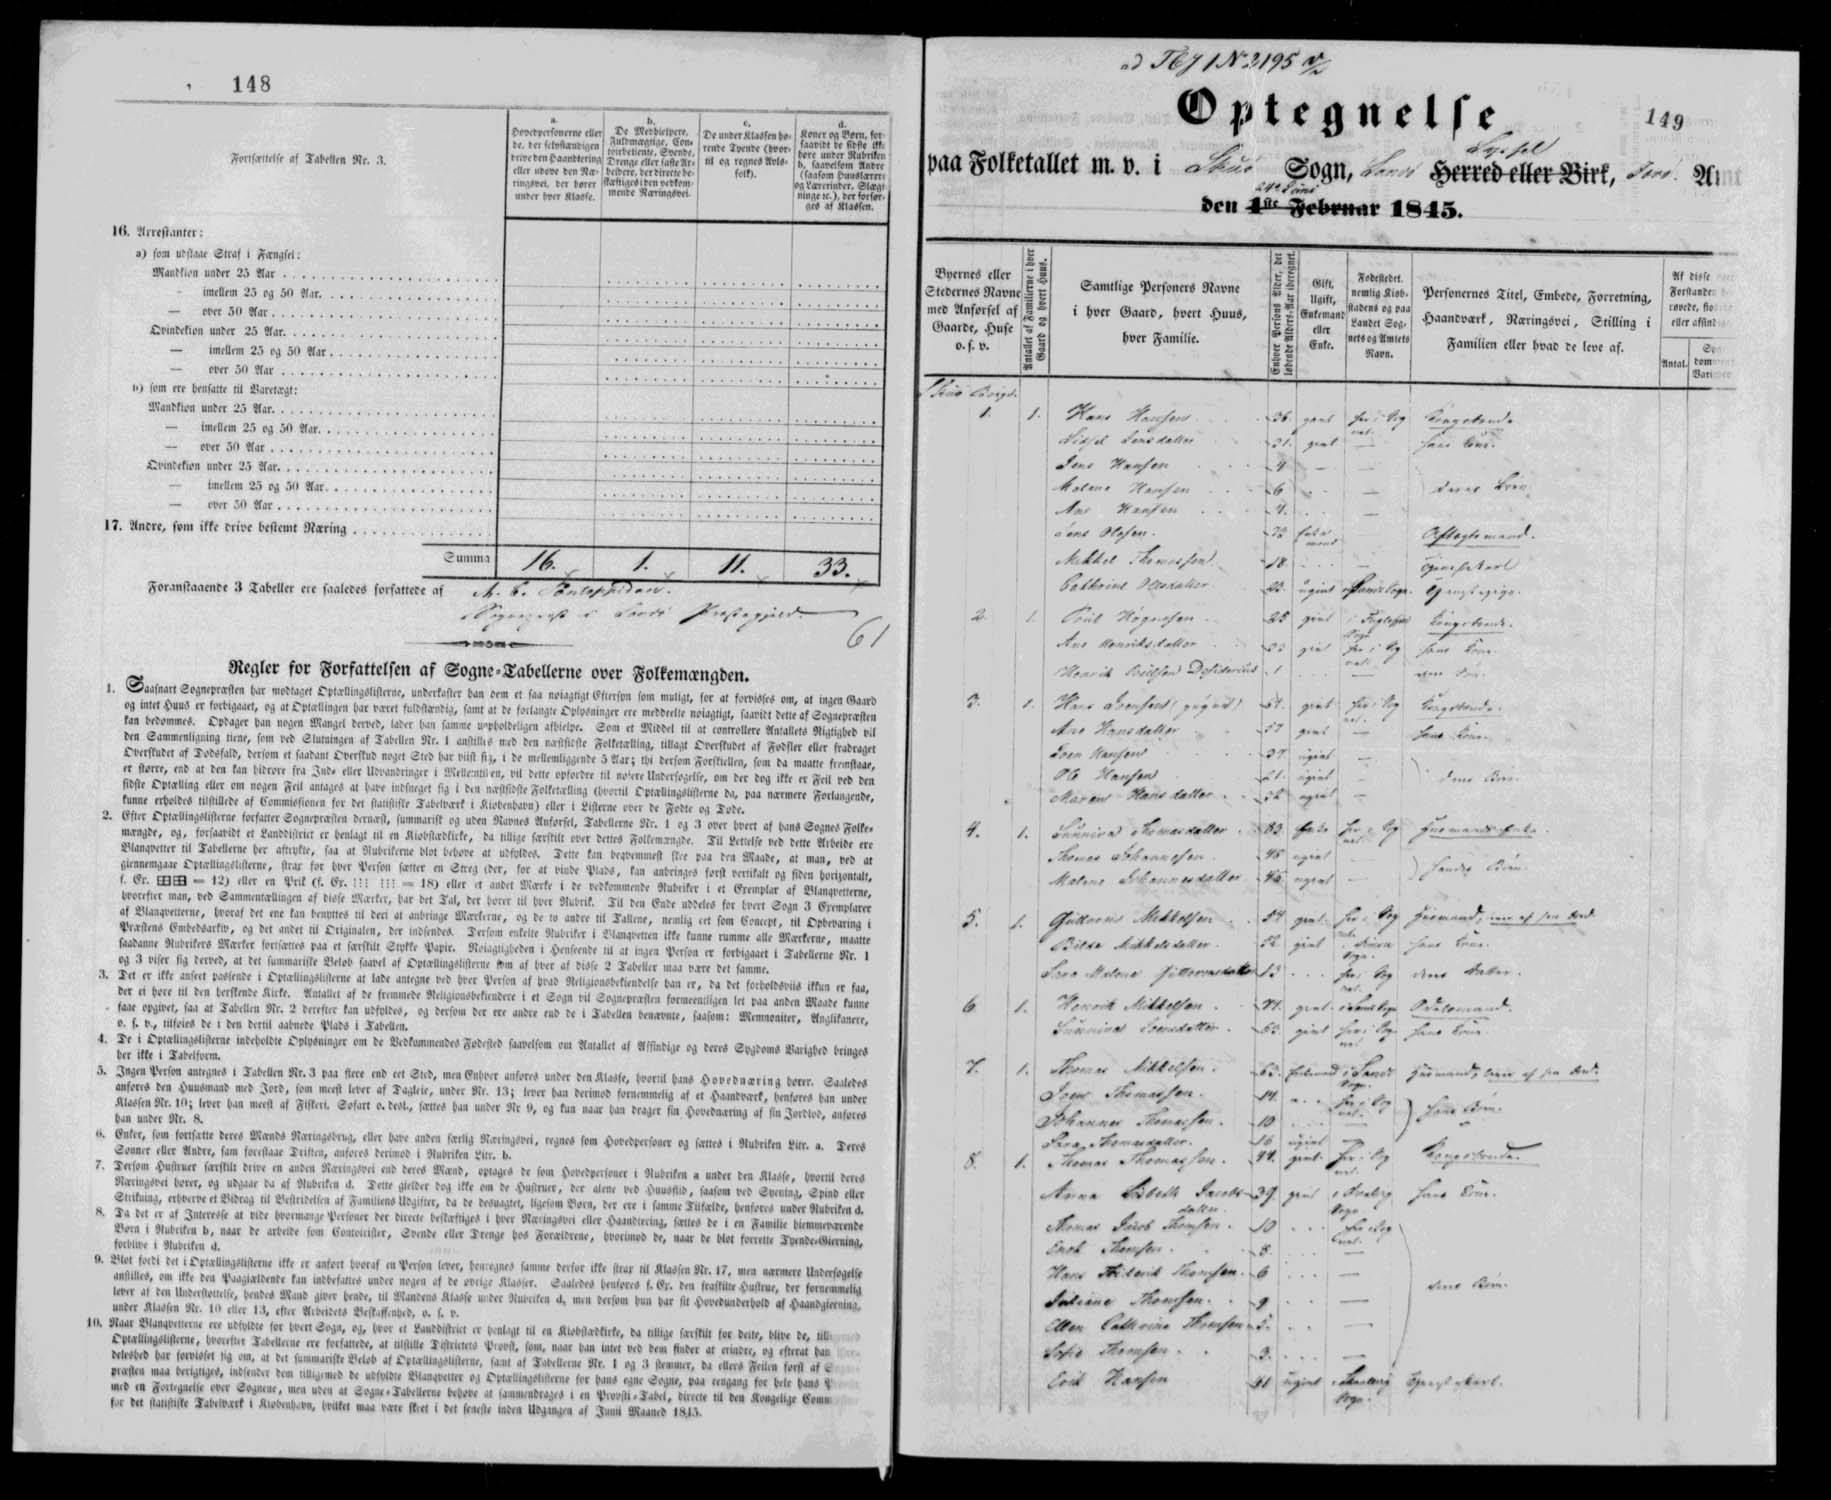 148
Fortsættelse af Tabellen Nr. 3.
a. Hovedpersonerne eller de, der selvstændigen drive den Haandtering eller udøve den Næringsvei, der hører under hver Klasse.
b. De Medhielpere, Fuldmægtige, Contoirbetiente, Svende, Drenge eller faste Arbeidere, der directe beskæftiges i den vedkommende Næringsvei.
c. De under Klassen hørende Tyende (hvortil og regnes Avlsfolk).
d. Koner og Børn, forsaavidt de sidste ikke høre under Rubriken b, saavelsom Andre (saasom Huuslærere og Lærerinder, Slægtninge ꝛc.), der forsørges af Klassen.
16. Arrestanter:
a) som udstaae Straf i Fængsel:
Mandkiøn under 25 Aar
— imellem 25 og 50 Aar.
— over 50 Aar
Qvindekiøn under 25 Aar.
— imellem 25 og 50 Aar
— over 50 Aar
b) som ere hensatte til Varetægt:
Mandkiøn under 25 Aar.
— imellem 25 og 50 Aar.
— over 50 Aar
Qvindekiøn under 25 Aar.
— imellem 25 og 50 Aar.
— over 50 Aar
17. Andre, som ikke drive bestemt Næring
Summa 16. 1. 11. 33.
Foranstaaende 3 Tabeller ere saaledes forfattede af
Sognepræst i Sandø Præstegjeld
61
Regler for Forfattelsen af Sogne-Tabellerne over Folkemængden.
1. Saasnart Sognepræsten har modtaget Optællingslisterne, underkaster han dem et saa nøiagtigt Eftersyn som muligt, for at forvisses om, at ingen Gaard
og intet Huus er forbigaaet, og at Optællingen har været fuldstændig, samt at de forlangte Oplysninger ere meddeelte nøiagtigt, saavidt dette af Sognepræsten
kan bedømmes. Opdager han nogen Mangel derved, lader han samme uopholdeligen afhielpe. Som et Middel til at controllere Antallets Rigtighed vil
den Sammenligning tiene, som ved Slutningen af Tabellen Nr. 1 anstilles med den næstsidste Folketælling, tillagt Overskudet af Fødsler eller fradraget
Overskudet af Dødsfald, dersom et saadant Overskud noget Sted har viist sig, i de mellemliggende 5 Aar; thi dersom Forskiellen, som da maatte fremstaae,
er større, end at den kan hidrøre fra Ind- eller Udvandringer i Mellemtiden, vil dette opfordre til nøiere Undersøgelse, om der dog ikke er Feil ved den
sidste Optælling eller om nogen Feil antages at have indsneget sig i den næstsidste Folketælling (hvortil Optællingslisterne da, paa nærmere Forlangende,
kunne erholdes tilstillede af Commissionen for det statistiske Tabelværk i Kiøbenhavn) eller i Listerne over de Fødte og Døde.
2. Efter Optællingslisterne forfatter Sognepræsten dernæst, summarisk og uden Navnes Anførsel, Tabellerne Nr. 1 og 3 over hvert af hans Sognes Folke-
mængde, og, forsaavidt et Landdistrict er henlagt til en Kiøbstædkirke, da tillige særskilt over dettes Folkemængde. Til Lettelse ved dette Arbeide ere
Blanqvetter til Tabellerne her aftrykte, saa at Rubrikerne blot behøve at udfyldes. Dette kan beqvemmest skee paa den Maade, at man, ved at
giennemgaae Optællingslisterne, strax for hver Person sætter en Streg (der, for at vinde Plads, kan anbringes først vertikalt og siden horizontalt,
f. Ex. = 12) eller en Prik (f. Ex. = 18) eller et andet Mærke i de vedkommende Rubriker i et Exemplar af Blanqvetterne,
hvorefter man, ved Sammentællingen af disse Mærker, har det Tal, der hører til hver Rubrik. Til den Ende uddeles for hvert Sogn 3 Exemplarer
af Blanqvetterne, hvoraf det ene kan benyttes til deri at anbringe Mærkerne, og de to andre til Tallene, nemlig eet som Concept, til Opbevaring i
Præstens Embedsarkiv, og det andet til Originalen, der indsendes. Dersom enkelte Rubriker i Blanqvetten ikke kunne rumme alle Mærkerne, maatte
saadanne Rubrikers Mærker fortsættes paa et særskilt Stykke Papir. Nøiagtigheden i Henseende til at ingen Person er forbigaaet i Tabellerne Nr. 1
og 3 viser sig derved, at det summariske Beløb saavel af Optællingslisterne som af hver af disse 2 Tabeller maa være det samme.
3. Det er ikke anseet passende i Optællingslisterne at lade antegne ved hver Person af hvad Religionsbekiendelse han er, da det forholdsviis ikkun er faa,
der ei høre til den herskende Kirke. Antallet af de fremmede Religionsbekiendere i et Sogn vil Sognepræsten formeentligen let paa anden Maade kunne
faae opgivet, saa at Tabellen Nr. 2 derefter kan udfyldes, og dersom der ere andre end de i Tabellen benævnte, saasom: Memnoniter, Anglikanere,
o. s. v., tilføies de i den dertil aabnede Plads i Tabellen.
4. De i Optællingslisterne indeholdte Oplysninger om de Vedkommendes Fødested saavelsom om Antallet af Afsindige og deres Sygdoms Varighed bringes
her ikke i Tabelform.
5. Ingen Person antegnes i Tabellen Nr. 3 paa flere end eet Sted, men Enhver anføres under den Klasse, hvortil hans Hovednæring hører. Saaledes
anføres den Huusmand med Jord, som meest lever af Dagleie, under Nr. 13; lever han derimod fornemmelig af et Haandværk, henføres han under
Klassen Nr. 10; lever han meest af Fiskeri, Søfart o. desl., sættes han under Nr 9, og kun naar han drager sin Hovednæring af sin Jordlod, anføres
han under Nr. 8.
6. Enker, som fortsætte deres Mænds Næringsbrug, eller have anden særlig Næringsvei, regnes som Hovedpersoner og sættes i Rubriken Litr. a. Deres
Sønner eller Andre, som forestaae Driften, anføres derimod i Rubriken Litr. b.
7. Dersom Hustruer særskilt drive en anden Næringsvei end deres Mænd, optages de som Hovedpersoner i Rubriken a under den Klasse, hvortil deres
Næringsvei hører, og udgaae da af Rubriken d. Dette gielder dog ikke om de Hustruer, der alene ved Huusflid, saasom ved Syening, Spind eller
Strikning, erhverve et Bidrag til Bestridelsen af Familiens Udgifter, da de desuagtet, ligesom Børn, der ere i samme Tilfælde, henføres under Rubriken d.
8. Da det er af Interesse at vide hvormange Personer der directe beskæftiges i hver Næringsvei eller Haandtering, sættes de i en Familie hiemmeværende
Børn i Rubriken b, naar de arbeide som Contoirister, Svende eller Drenge hos Forældrene, hvorimod de, naar de blot forrette Tyende-Gierning,
forblive i Rubriken d.
9. Blot fordi det i Optællingslisterne ikke er anført hvoraf en Person lever, henregnes samme derfor ikke strax til Klassen Nr. 17, men nærmere Undersøgelse
anstilles, om ikke den Paagiældende kan indbefattes under nogen af de øvrige Klasser. Saaledes henføres f. Ex. den fraskilte Hustrue, der fornemmelig
lever af den Understøttelse, hendes Mand giver hende, til Mandens Klasse under Rubriken d, men dersom hun har sit Hovedunderhold af Haandgierning,
under Klassen Nr. 10 eller 13, efter Arbeidets Beskaffenhed, o. s. v.
10. Naar Blanqvetterne ere udfyldte for hvert Sogn, og, hvor et Landdistrict er henlagt til en Kiøbstædkirke, da tillige særskilt for dette, blive de,
Optællingslisterne, hvorefter Tabellerne ere forfattede, at tilstille Districtets Provst, som, naar han intet ved dem finder at erindre, og efterat han
deleshed har forvisset sig om, at det summariske Beløb af Optællingslisterne, samt af Tabellerne Nr. 1 og 3 stemmer, da ellers Feilen først af
præsten maa berigtiges, indsender dem tilligemed de udfyldte Blanqvetter og Optællingslisterne for hans egne Sogne, paa eengang for hele hans
med en Fortegnelse over Sognene, men uden at Sogne-Tabellerne behøve at sammendrages i en Provsti-Tabel, directe til den Kongelige
for det statistiske Tabelværk i Kiøbenhavn, hvilket maa være skeet i det seneste inden Udgangen af Junii Maaned 1845.
149
Optegnelse
paa Folketallet m. v. i Skuø Sogn, Sandø Syssel Herred eller Birk, Færø. Amt
den 1ste Februar 1845.
Byernes eller Stedernes Navne med Anførsel af Gaarde, Huse o. s. v.
Antallet af Familierne i hver Gaard og hvert Huus.
Samtlige Personers Navne i hver Gaard, hvert Huus, hver Familie.
Enhver Persons Alder, det løbende Alders-Aar iberegnet.
Gift, Ugift, Enkemand eller Enke.
Fødestedet, nemlig Kiøbstadens og paa Landet Sognets og Amtets Navn.
Personernes Titel, Embede, Forretning, Haandværk, Næringsvei, Stilling i Familien eller hvad de leve af.
Af disse
Antal.
Skuø Bøigd.
1. 1. Hans Hansen 36. givt her i Sog Kongsbonde
Jensdatter 31. givt — hans Kone.
Jens Hansen — —
Malene Hansen 6 — deres Børn
Ane Hansen 4. —
Jens Olesen. Enkemand — Aftægtsmand.
Mikkel Thomassen 18
Cathrine Olesdatter ugivt
2. 1. Poul Høgnesen 25 givt Kongsbonde.
Ane Henriksdatter givt her i Sog hans Kone.
Henrik Poulsen 1 —
3. 1. Hans Joensen givt her i Sog Kongsbonde.
Ane Hansdatter 57 givt — hans Kone
Joen Hansen 27. ugivt —
Ole Hansen 21. ugivt — deres Børn
Maren Hansdatter ugivt —
4. 1. Sunniva Thomasdatter 83. Enke her i Sog
Thomas Johannesen 46 ugivt —
Malene Johannesdatter ugivt — hendes Børn.
5. 1. Guttorm Mikkelsen 54 givt her i Sog Husmand,
Mikkelsdatter 52. givt hans Kone.
Sara Malene Guttormsdatter 13 her i Sog deres Datter.
6. 1. Henrik Mikkelsen givt i Sands Sogn Odelsmand.
Sunniva Joensdatter givt her i Sog hans Kone
7. 1. Thomas Mikkelsen. Enkemand i Sands Sogn. Husmand,
Joen Thomassen. 14. her i Sog
Johannes Thomassen. 10 — hans Børn.
Sara Thomasdatter. 16 ugivt —
8. 1. Thomas Thomassen. 44. givt her i Sog Kongsbonde.
Anna Lisbeth Jacobsdatter 39. givt Sogn hans Kone.
Thomas Jacob Thomsen. 10 her i Sog
Thomsen. 8. —
Hans Thomsen. 6 —
Juliane Thomsen. 9 — deres Børn.
Ellen Cathrine Thomsen 5. —
Sofie Thomsen. 3. —
Hansen 41 ugivt Sogn.